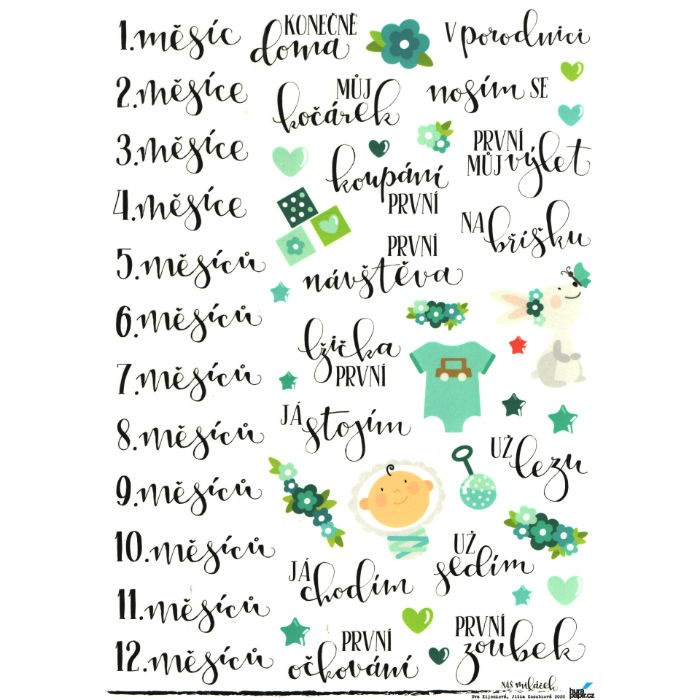 1. měsíc
2. měsíce
3. měsíce
4. měsíce
5. měsíců
6. měsíců
7. měsíců
8. měsíců
9. měsíců
10. měsíců
11. měsíců
12. měsíců
KONEČNĚ
doma
V porodnici
MŮJ
kočárek
nosím SE
koupání
PRVNÍ
PRVNÍ
MŮJ výlet
PRVNÍ
návštěva
NA
bříšku
lžička
PRVNÍ
JÁ
stojím
UŽ
lezu
JÁ
chodím
UŽ
sedím
PRVNÍ
očkování
PRVNÍ
zoubek
NÁŠ miláček